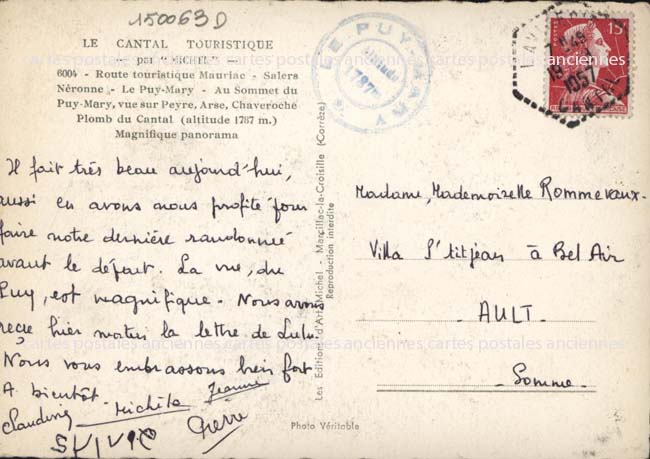 150063D
LE CANTAL TOURISTIQUE
— par "MICHEL" —
6004 - Route touristique Mauriac - Salers
Néronne - Le Puy-Mary - Au Sommet du
Puy-Mary, vue sur Peyre, Arse, Chaveroche
Plomb du Cantal (altitude 1787 m.)
Magnifique panorama
LE PUY-MARY
Altitude
1787m
15F
1957
CANTAL
Il fait très beau aujourd'hui,
aussi en avons nous profité pour
faire notre dernière randonnée
avant le départ. La vue, du
Puy, est magnifique. Nous avons
reçu hier matin la lettre de Lulu.
Nous vous embrassons bien fort
A bientôt.
Claudine Michèle Jeanne
Pierre
Les Editions d'Art Michel - Marcillac-la-Croisille (Corrèze)
Reproduction interdite
Madame, Mademoiselle Rommevaux.
Villa P'titjean à Bel Air
AULT.
Somme.
Photo Véritable
cartes postales anciennes